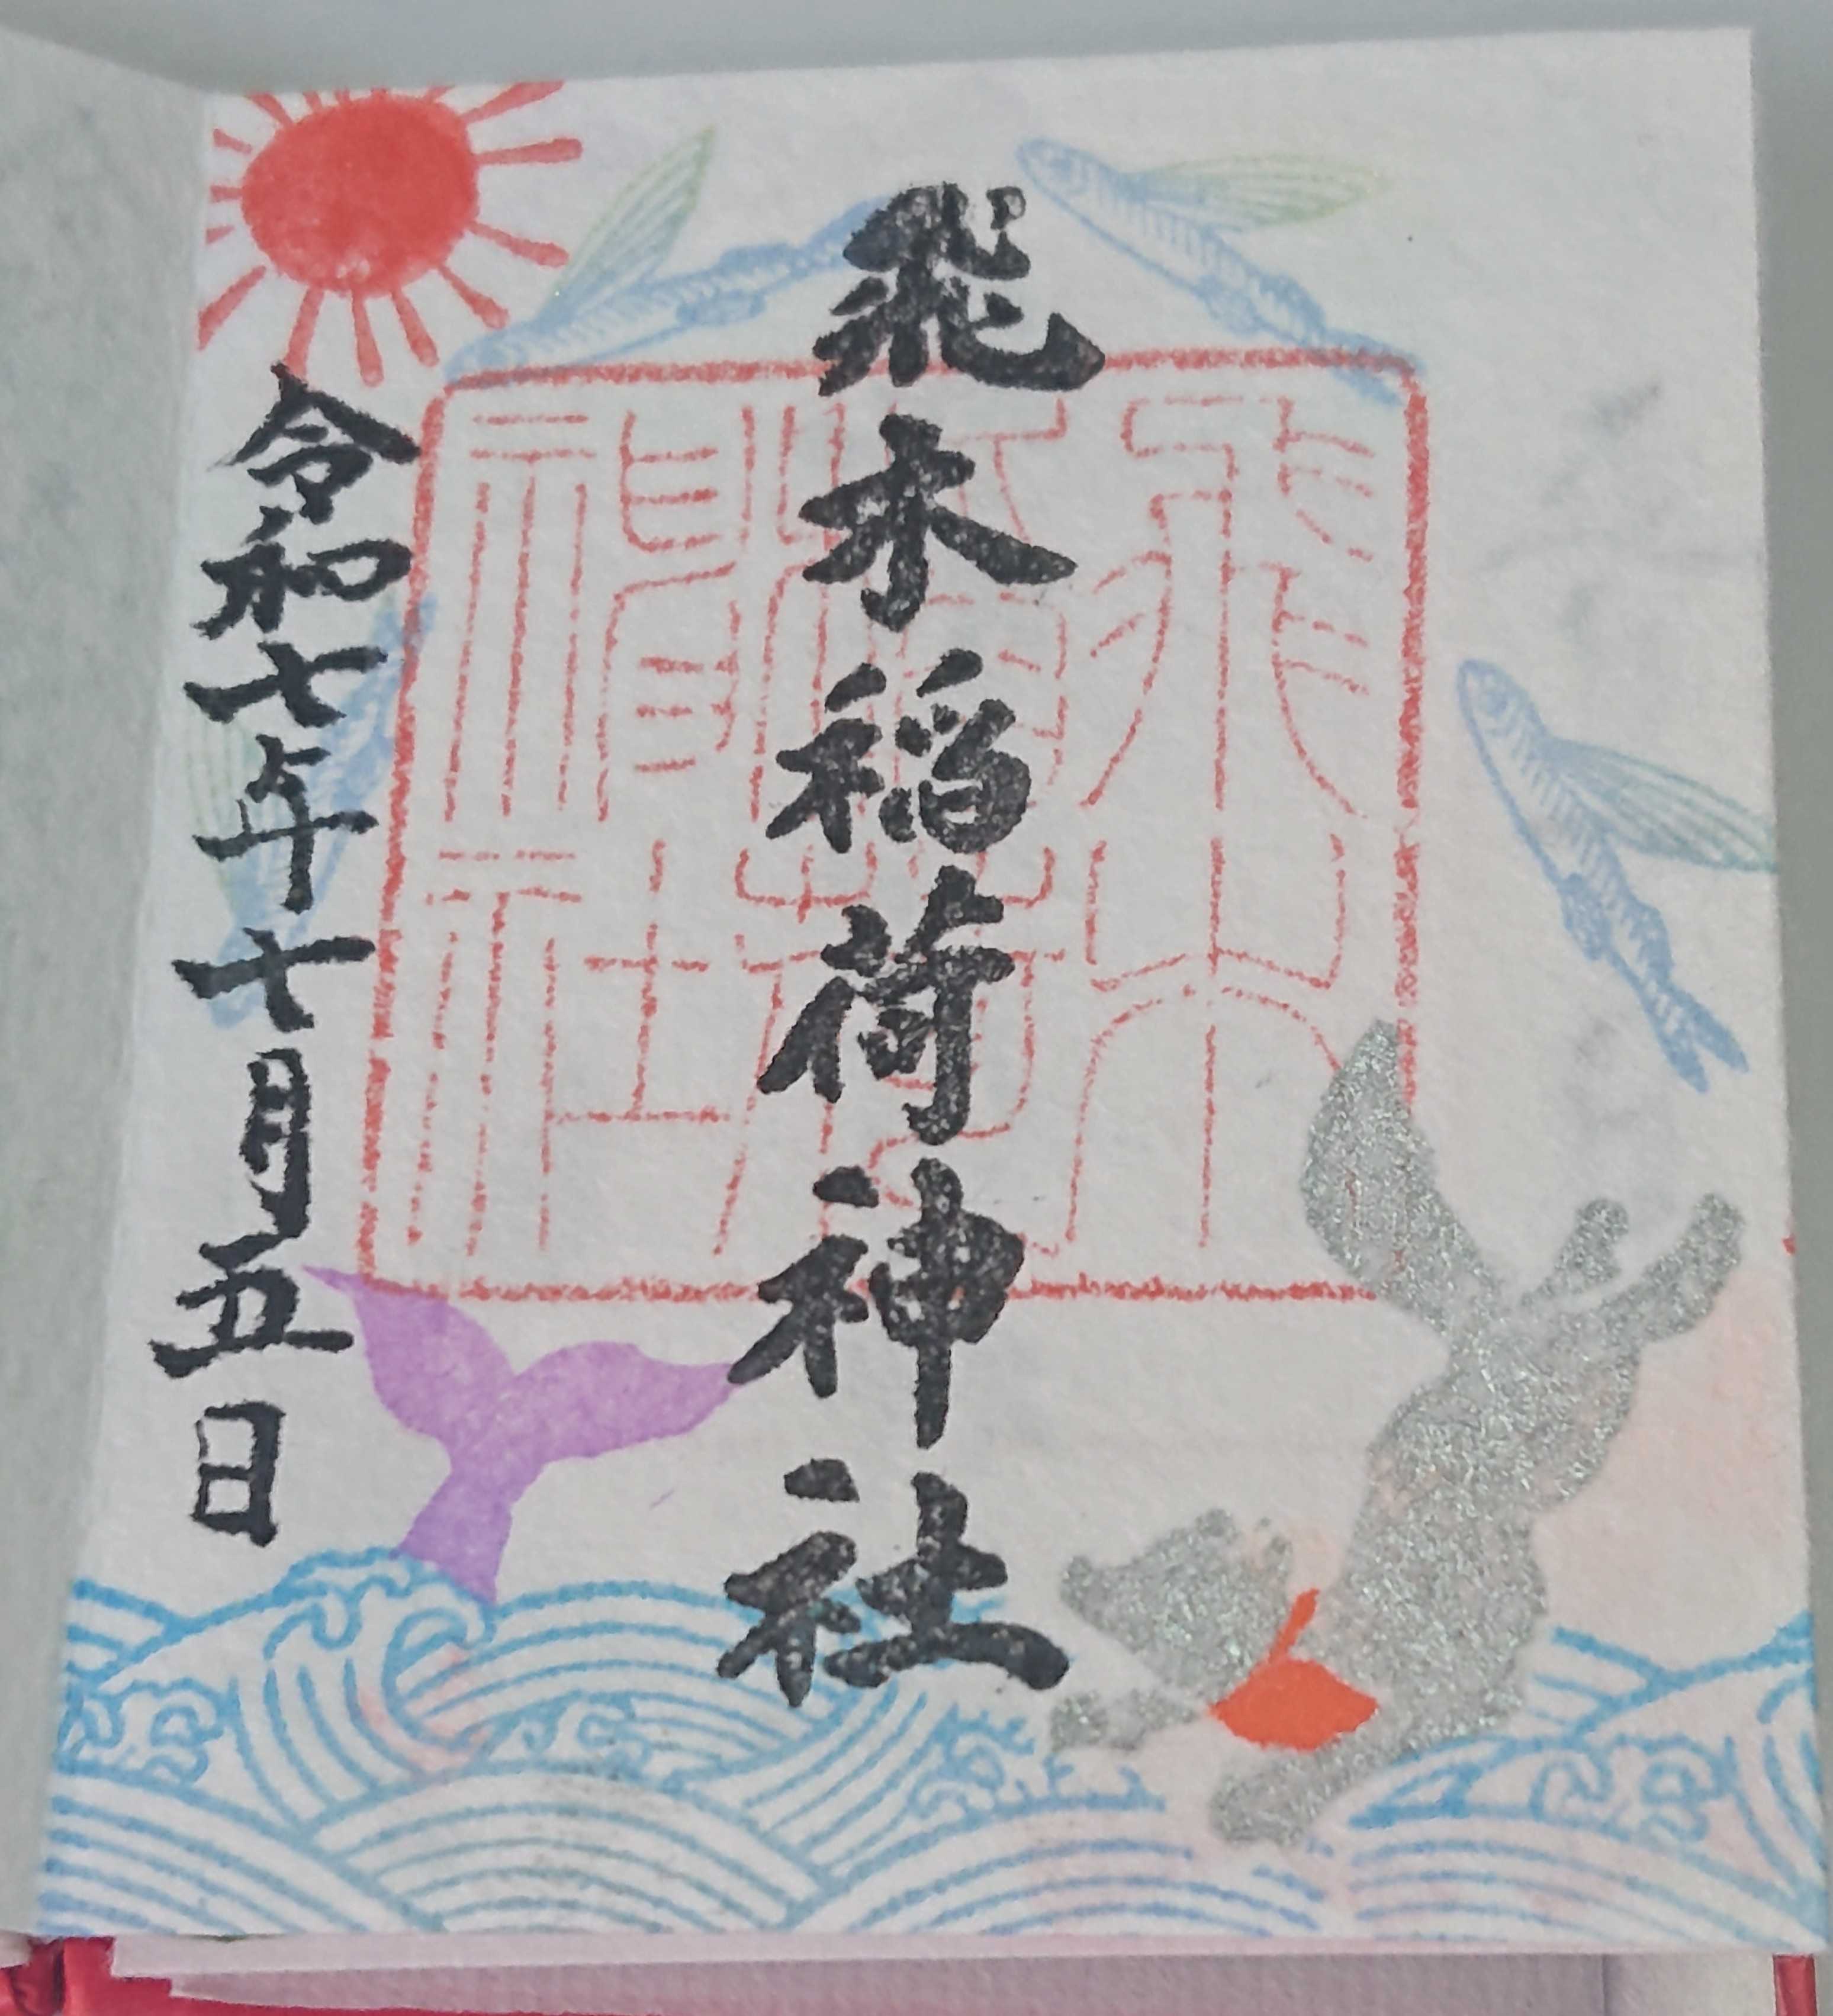 飛木稲荷神社
飛木
稲荷
神社
令和七年十月五日